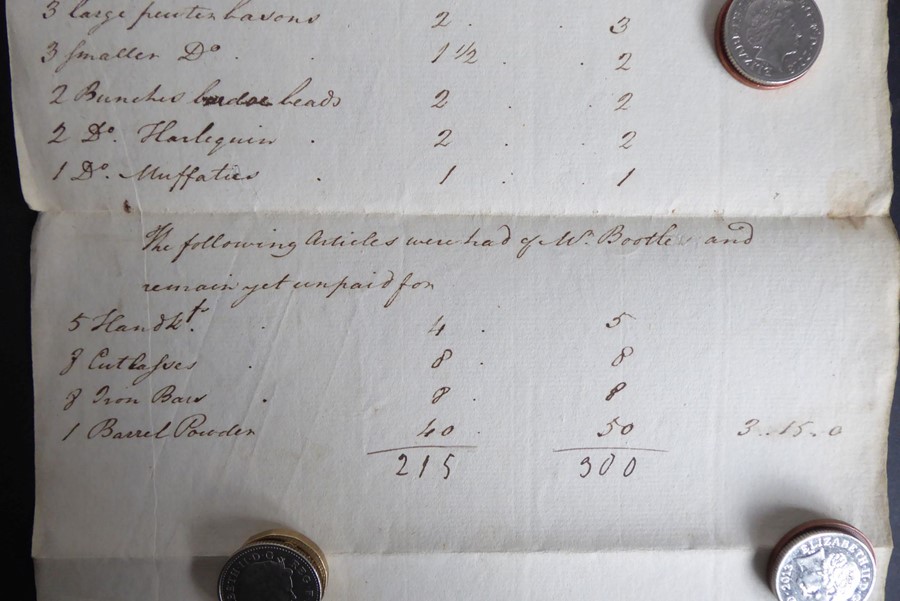 3 large pewter basons 2 . 3
3 smaller Do . . 1 1/2 . . 2
2 Bunches beads 2 . . 2
2 Do. Harlequin . 2 . . 2
1 Do. Muffaties . 1 . . 1
The following Articles were had of Mr. Bootle and
remain yet unpaid for
5 Handkfs . 4 . 5
8 Cutlasses . 8 . 8
8 Iron Bars . 8 . 8
1 Barrel Powder 40 . 50 3..15.0
215 300
ELIZABETH II D
2013